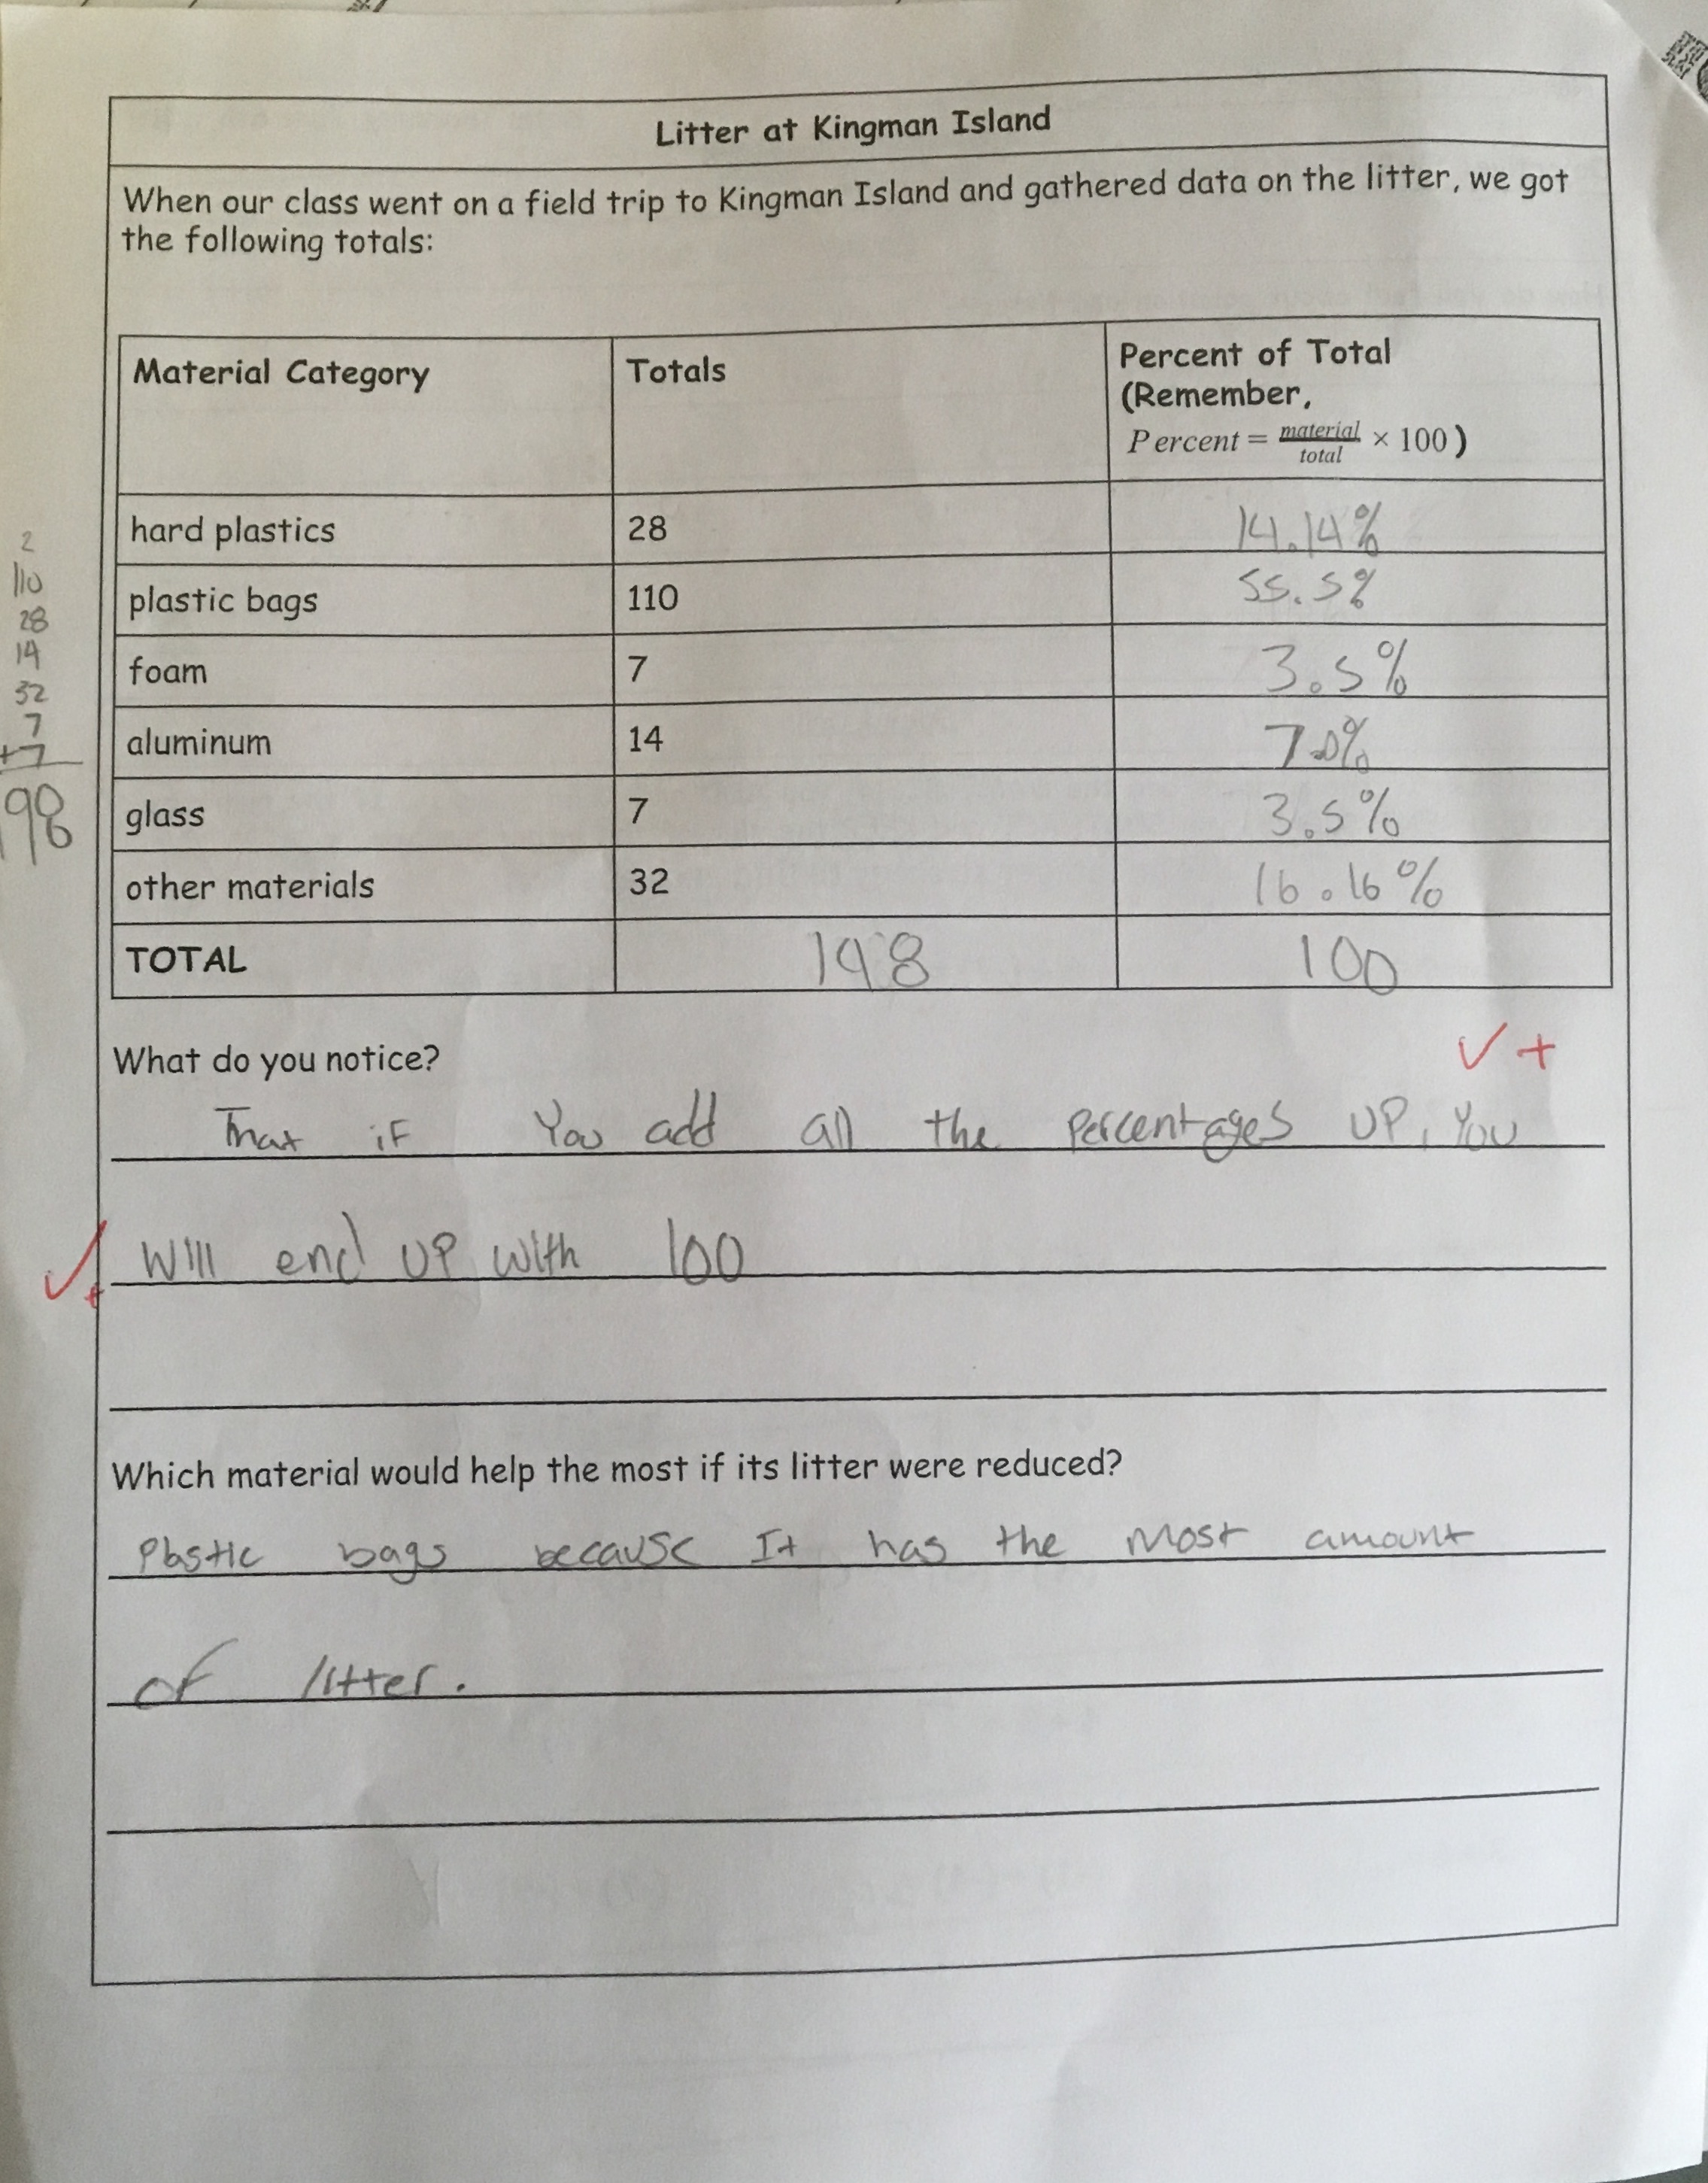 Litter at Kingman Island
When our class went on a field trip to Kingman Island and gathered data on the litter, we got
the following totals:
Material Category Totals Percent of Total
(Remember,
Percent = material/total × 100)
hard plastics 28 14.14%
plastic bags 110 55.5%
foam 7 3.5%
aluminum 14 7.0%
glass 7 3.5%
other materials 32 16.16%
TOTAL 198 100
2
110
28
14
32
7
+7
198
What do you notice?
✓+
That if You add all the percentages UP, You
✓+
Will end UP with 100
Which material would help the most if its litter were reduced?
Plastic bags because It has the Most amount
of litter.